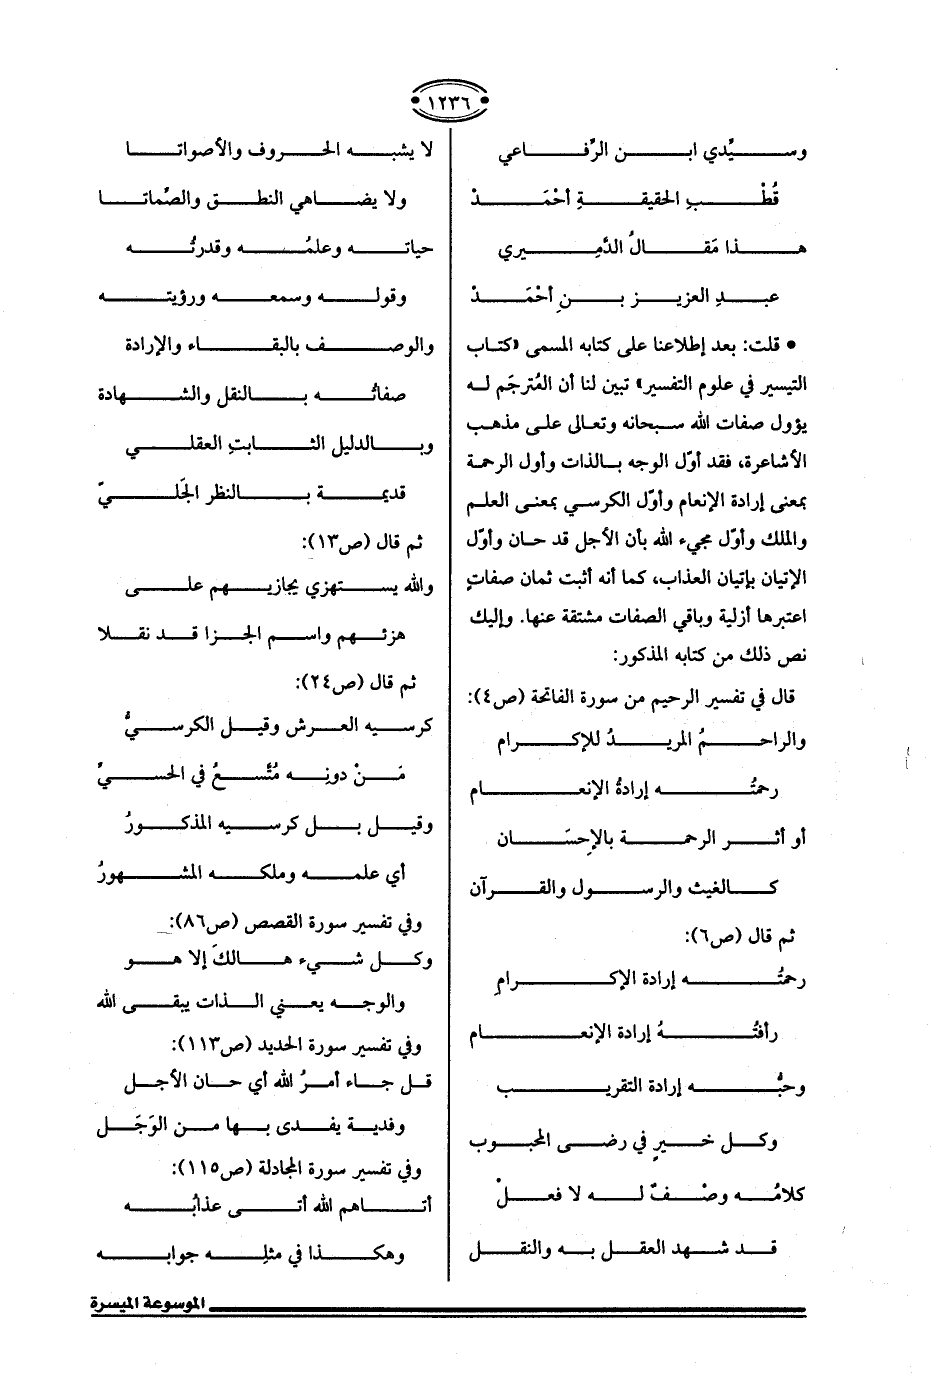 ١٢٣٦
وسيِّدي ابن الرِّفاعي
قُطْبِ الحقيقةِ أحْمَدْ
هذا مَقالُ الدَّمِيري
عبدِ العزيز بنِ أحْمَدْ
• قلت: بعد إطلاعنا على كتابه المسمى «كتاب
التيسير في علوم التفسير» تبين لنا أن المُترجَم له
يؤول صفات الله سبحانه وتعالى على مذهب
الأشاعرة، فقد أوّل الوجه بالذات وأول الرحمة
بمعنى إرادة الإنعام وأوّل الكرسي بمعنى العلم
والملك وأوّل مجيء الله بأن الأجل قد حان وأوّل
الإتيان بإتيان العذاب، كما أنه أثبت ثمان صفاتٍ
اعتبرها أزلية وباقي الصفات مشتقة عنها. وإليك
نص ذلك من كتابه المذكور:
قال في تفسير الرحيم من سورة الفاتحة (ص٤):
والراحمُ المريدُ للإكرام
رحمتُه إرادةُ الإنعام
أو أثر الرحمة بالإحسَان
كالغيث والرسول والقرآن
ثم قال (ص٦):
رحمتُه إرادة الإكرامِ
رأفتُهُ إرادة الإنعام
وحبُّه إرادة التقريب
وكل خيرٍ في رضى المحبوب
كلامُه وصْفٌ له لا فعلْ
قد شهد العقل به والنقل
لا يشبه الحروف والأصواتا
ولا يضاهي النطق والصِّماتا
حياته وعلمُه وقدرتُه
وقوله وسمعه ورؤيته
والوصف بالبقاء والإرادة
صفاتُه بالنقل والشهادة
وبالدليل الثابتِ العقلي
قديمة بالنظر الجَليّ
ثم قال (ص١٣):
والله يستهزي يجازيهم على
هزئهم واسم الجزا قد نقلا
ثم قال (ص٢٤):
كرسيه العرش وقيل الكرسيُّ
مَنْ دونِه مُتَّسعُ في الحسيِّ
وقيل بل كرسيه المذكورُ
أي علمه وملكه المشهورُ
وفي تفسير سورة القصص (ص٨٦):
وكل شيء هالكَ إلا هو
والوجه يعني الذات يبقى الله
وفي تفسير سورة الحديد (ص١١٣):
قل جاء أمرُ الله أي حان الأجل
وفدية يفدى بها من الوَجَل
وفي تفسير سورة المجادلة (ص١١٥):
أتاهم الله أتى عذابُه
وهكذا في مثلِه جوابه
الموسوعة الميسرة